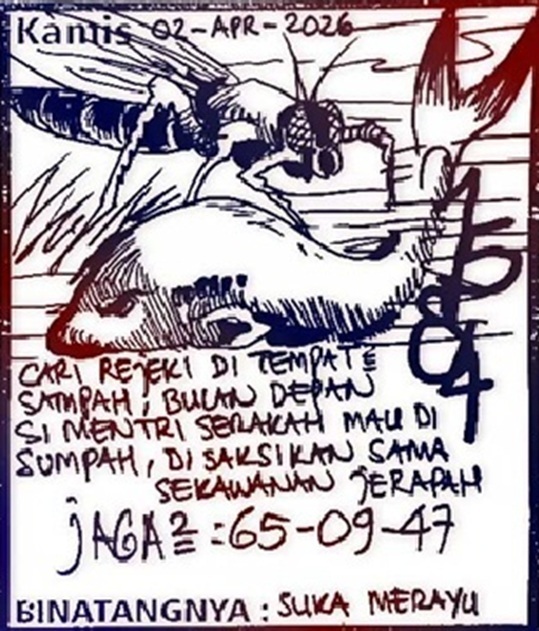 Kamis 02-APR-2026
1584
CARI REJEKI DI TEMPAT=
SAMPAH, BULAN DEPAN
SI MENTRI SERAKAH MAU DI
SUMPAH, DI SAKSIKAN SAMA
SEKAWANAN JERAPAH
JAGA2 =: 65-09-47
BINATANGNYA : SUKA MERAYU